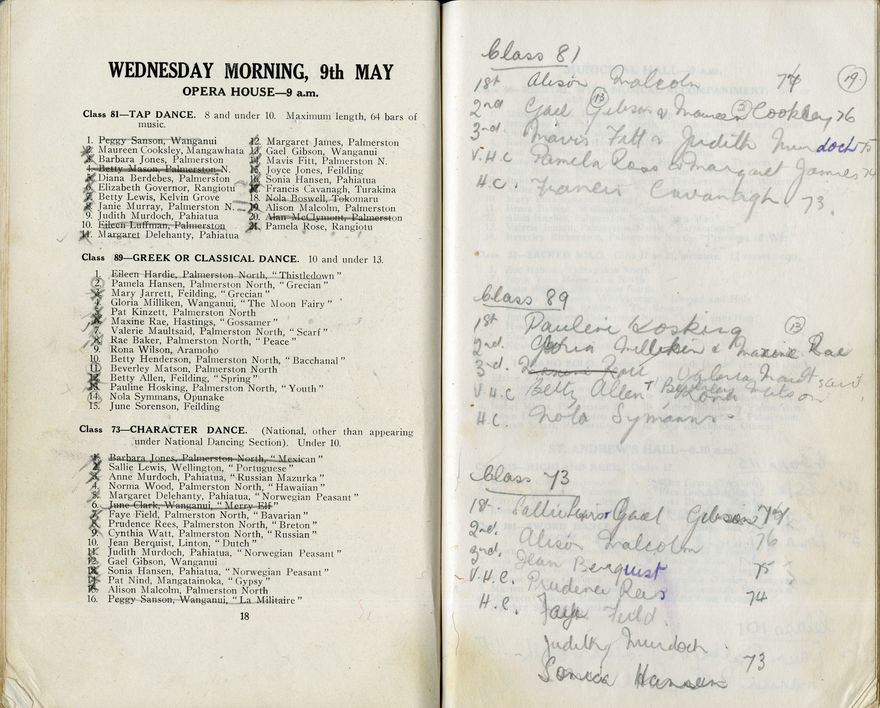 WEDNESDAY MORNING, 9th MAY
OPERA HOUSE—9 a.m.
Class 81—TAP DANCE. 8 and under 10. Maximum length, 64 bars of
music.
1. Peggy Sanson, Wanganui
2. Maureen Cooksley, Mangawhata
3. Barbara Jones, Palmerston
4. Betty Mason, Palmerston N.
5. Diana Berdebes, Palmerston
6. Elizabeth Governor, Rangiotu
7. Betty Lewis, Kelvin Grove
8. Janie Murray, Palmerston N.
9. Judith Murdoch, Pahiatua
10. Eileen Luffman, Palmerston
11. Margaret Delehanty, Pahiatua
12. Margaret James, Palmerston
13. Gael Gibson, Wanganui
14. Mavis Fitt, Palmerston N.
15. Joyce Jones, Feilding
16. Sonia Hansen, Pahiatua
17. Francis Cavanagh, Turakina
18. Nola Boswell, Tokomaru
19. Alison Malcolm, Palmerston
20. Alan McClymont, Palmerston
21. Pamela Rose, Rangiotu
Class 89—GREEK OR CLASSICAL DANCE. 10 and under 13.
1. Eileen Hardie, Palmerston North, "Thistledown"
2. Pamela Hansen, Palmerston North, "Grecian"
3. Mary Jarrett, Feilding, "Grecian"
4. Gloria Milliken, Wanganui, "The Moon Fairy"
5. Pat Kinzett, Palmerston North
6. Maxine Rae, Hastings, "Gossamer"
7. Valerie Maultsaid, Palmerston North, "Scarf"
8. Rae Baker, Palmerston North, "Peace"
9. Rona Wilson, Aramoho
10. Betty Henderson, Palmerston North, "Bacchanal"
11. Beverley Matson, Palmerston North
12. Betty Allen, Feilding, "Spring"
13. Pauline Hosking, Palmerston North, "Youth"
14. Nola Symmans, Opunake
15. June Sorenson, Feilding
Class 73—CHARACTER DANCE. (National, other than appearing
under National Dancing Section). Under 10.
1. Barbara Jones, Palmerston North, "Mexican"
2. Sallie Lewis, Wellington, "Portuguese"
3. Anne Murdoch, Pahiatua, "Russian Mazurka"
4. Norma Wood, Palmerston North, "Hawaiian"
5. Margaret Delehanty, Pahiatua, "Norwegian Peasant"
6. June Clark, Wanganui, "Merry Elf"
7. Faye Field, Palmerston North, "Bavarian"
8. Prudence Rees, Palmerston North, "Breton"
9. Cynthia Watt, Palmerston North, "Russian"
10. Jean Berquist, Linton, "Dutch"
11. Judith Murdoch, Pahiatua, "Norwegian Peasant"
12. Gael Gibson, Wanganui
13. Sonia Hansen, Pahiatua, "Norwegian Peasant"
14. Pat Nind, Mangatainoka, "Gypsy"
15. Alison Malcolm, Palmerston North
16. Peggy Sanson, Wanganui, "La Militaire"
18
Class 81
1st Alison Malcolm 77 19
2nd Gael Gibson 13 & Maureen 2 Cooksley 76
3rd. Mavis Fitt & Judith Murdoch 75
V.H.C Pamela Rose & Margaret James 74
H.C. Francis Cavanagh 73.
Class 89
1st Pauline Hosking 13
2nd. Gloria Milliken & Maxine Rae
3rd. Valerie Maultsaid
V.H.C Betty Allen Beverley Matson
H.C. Nola Symmans
Class 73
1st. Sallie Lewis Gael Gibson 77
2nd. Alison Malcolm 76
3rd. Jean Berquist 75
V.H.C. Prudence Rees 74
H.C. Faye Field.
Judith Murdoch
Sonia Hansen 73